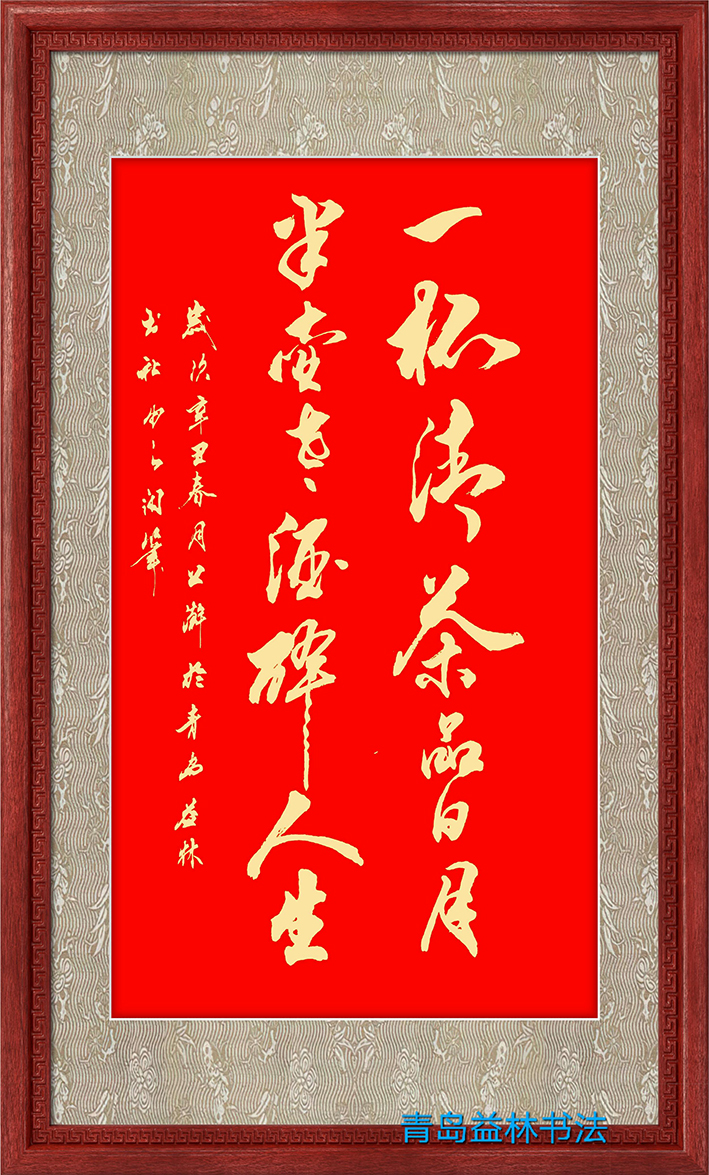 一杯清茶品日月
半壶老酒醉人生
岁次辛丑春月公辭於青岛益林
书社必之润笔
青岛益林书法